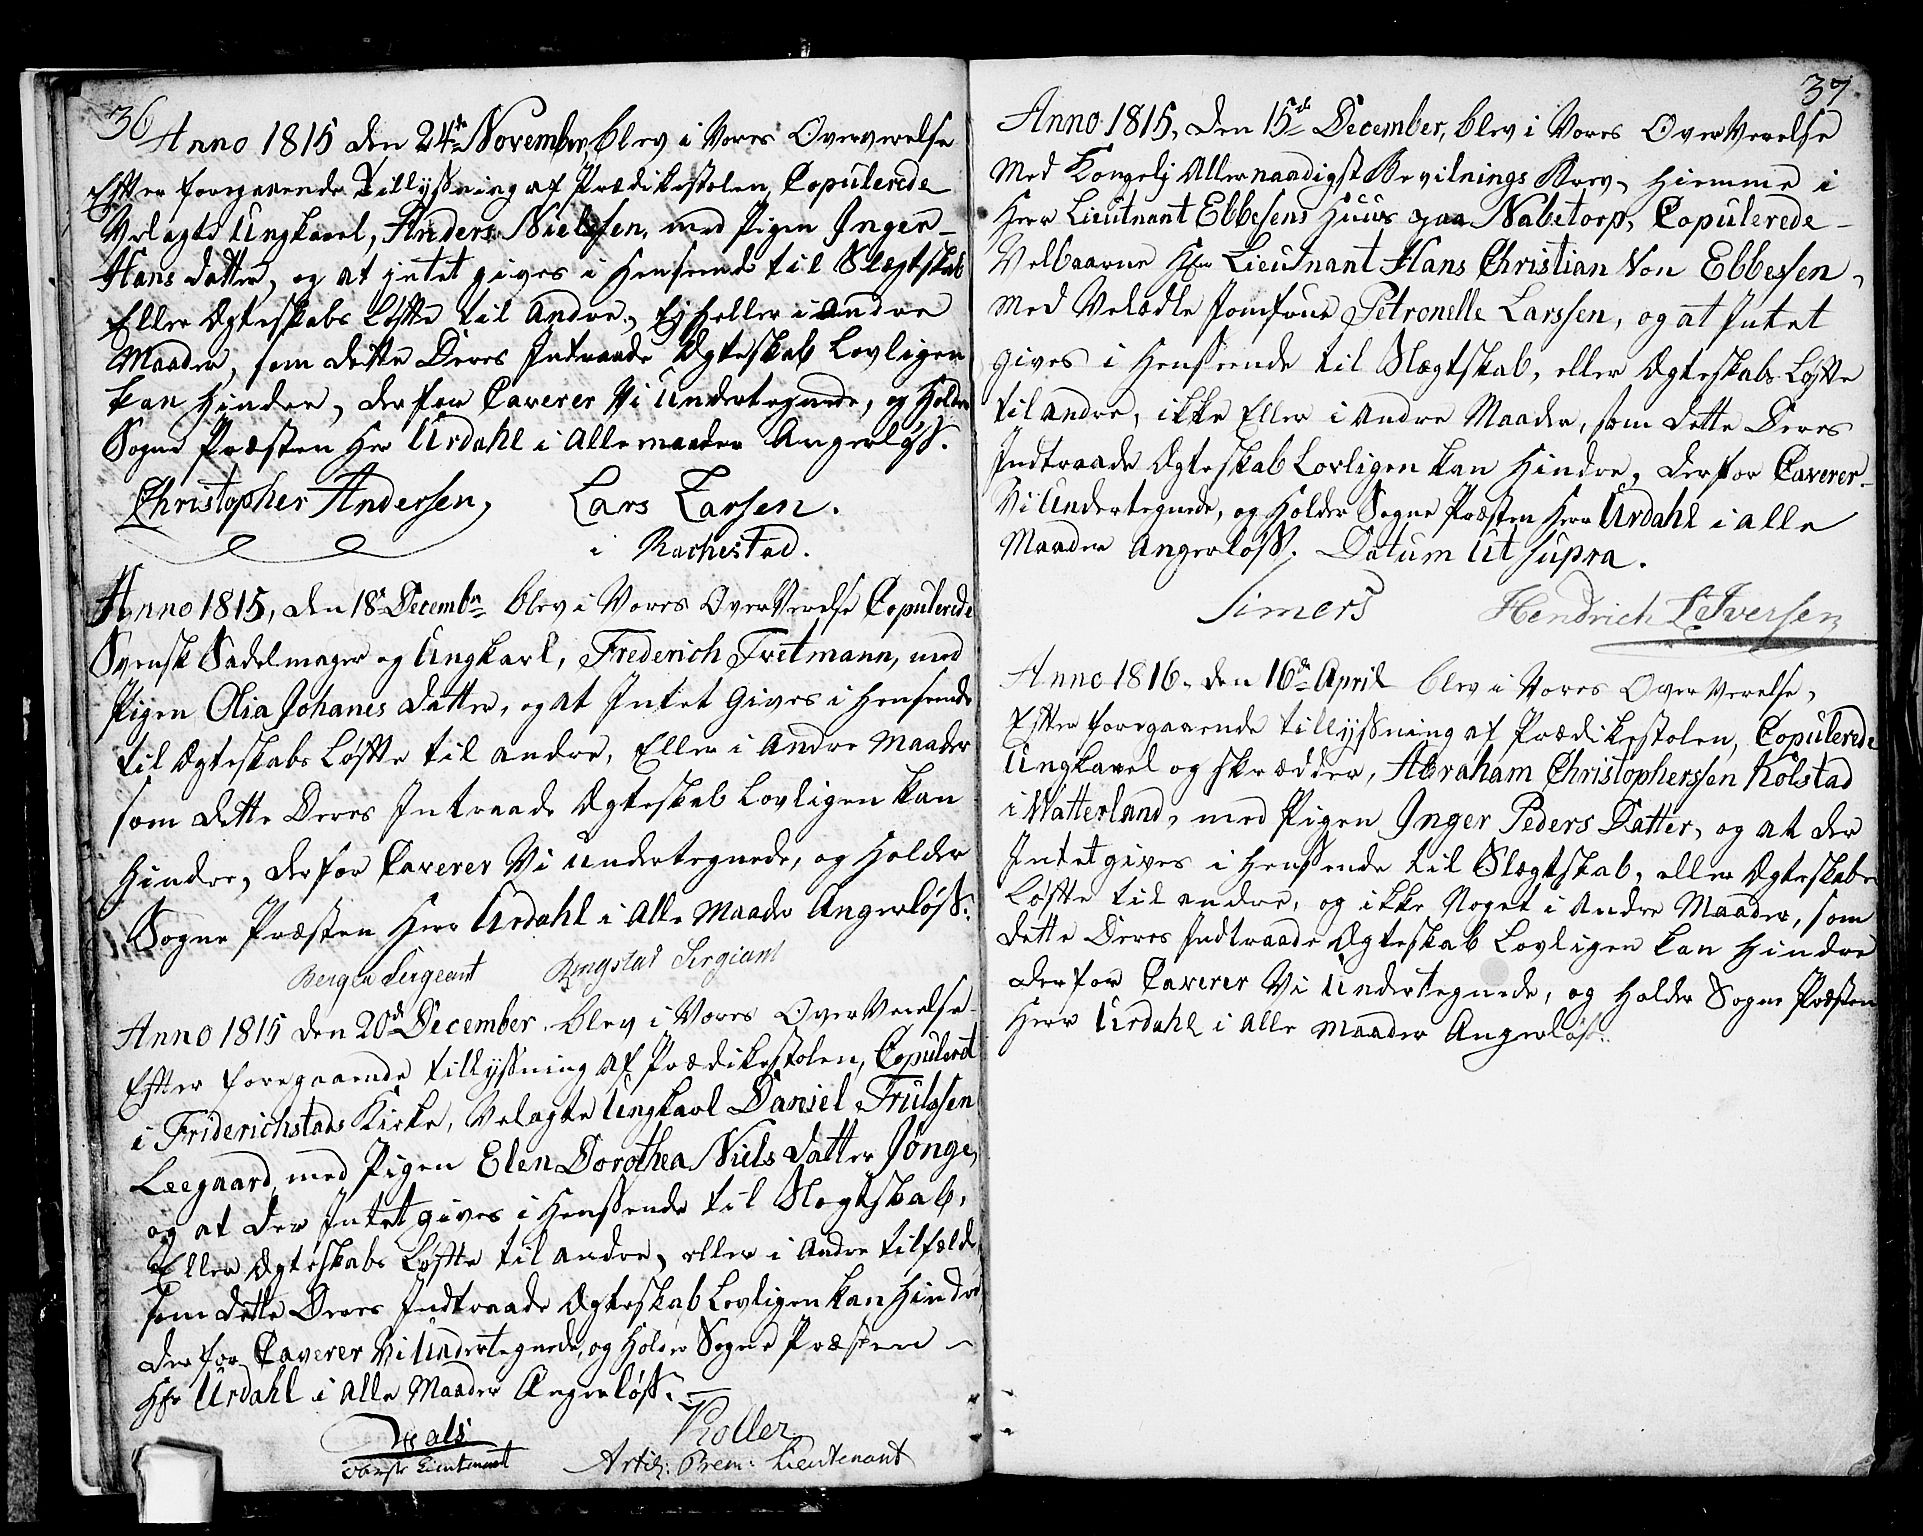 36
Anno 1815 den 24de November, blev i Vores Oververelse
Efter foregaaende Tillysning af Prædikestolen, Copulerede
Velagte Ungkarl, Anders Nielsen, med Pigen Inger
Hans datter, og at intet gives i Henseende til Slægtskab
Eller Ægteskabs Løfte til Andre, Ej heller i Andre
Maader, som dette Deres Indtraade Ægteskab Lovligen
kan Hindre, derfor Caverer Vi Undertegnede, og Holder
Sogne Præsten Her Urdahl i Alle maader Angerløss.
Christopher Andersen, Lars Larsen.
i Rachestad.
Anno 1815, den 18de Decembr blev i Vores OverVerelse Copulerede
Svensk Sadelmager og Ungkarl, Frederich Tretmann, med
Pigen Olia Johanes datter, og at Intet Gives i Henseende
til Ægteskabs Løfte til andre, Eller i Andre Maader
som dette Deres Intraade Ægteskab Lovligen kan
Hindre, derfor Caverer Vi Undertegnede, og Holder
Sogne Præsten Herr Urdahl i Alle Maader Angerløss.
Bergen Sergeant Ringstad Sergiant
Anno 1815 den 20de December blev i Vores OverVerelse
Efter foregaaende tillysning af Prædikestolen, Copuleret
i Friderichstads Kirke, Velagte Ungkarl Daniel Trulssen
Leegaard, med Pigen Elen Dorothea Niels datter Jonge,
og at der Intet gives i Henssende til Slegtskab,
Eller Ægteskabs Løfte til andre, eller i Andre tilfælde,
som dette Deres Indtraade Ægteskab Lovligen kan Hindre
derfor Caverer Vi Undertegnede, og Holder Sogne Præsten
Hr Urdahl i Alle Maader Angerløss.
Lieutenant Roller
Artil: Prem: Lieutenant
37
Anno 1815, den 15de December, blev i Vores OverVerelse
Med Kongelig Allernaadigst Bevilnings Brev, Hiemme i
Herr Lieutnant Ebbesens Huus paa Nabetorp, Copulerede
Velbaarne Hr Lieutnant Hans Christian Von Ebbesen,
med Velædle Jomfrue Petronelle Larssen, og at Intet
gives i Henseende til Slægtskab, eller Ægteskabs Løfte
til andre, ikke Eller i Andre Maader, som dette Deres
Indtraade Ægteskab Lovligen kan Hindre, derfor Caverer
Vi Undertegnede, og Holder Sogne Præsten Herr Urdahl i alle
Maader Angerløss. Datum Ut supra.
Simers Hendrich L Iversen
Anno 1816, den 16de April blev i Vores OverVerelse,
Efter foregaaende tillysning af Prædikestolen, Copulerede
Ungkarl og Skrædder, Abraham Christopherssen Kolstad
i Watterland, med Pigen Inger Peders Datter, og at der
Intet gives i Henssende til Slægtskab, eller Ægteskabs
Løfte til andre, og ikke Noget i Andre Maader, som
dette Deres Indtraade Ægteskab Lovligen kan Hindre
derfor Caverer Vi Undertegnede, og Holder Sogne Præsten
Herr Urdahl i Alle Maader Angerløss.